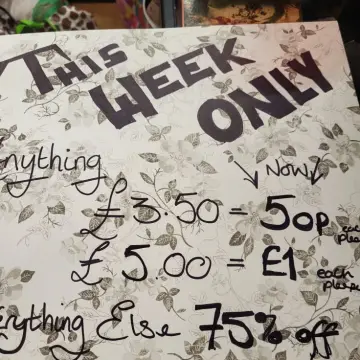 THIS
WEEK
ONLY
nything
NOW
£3.50 = 50p each
£5.00 = £1 each
erything Else 75% off